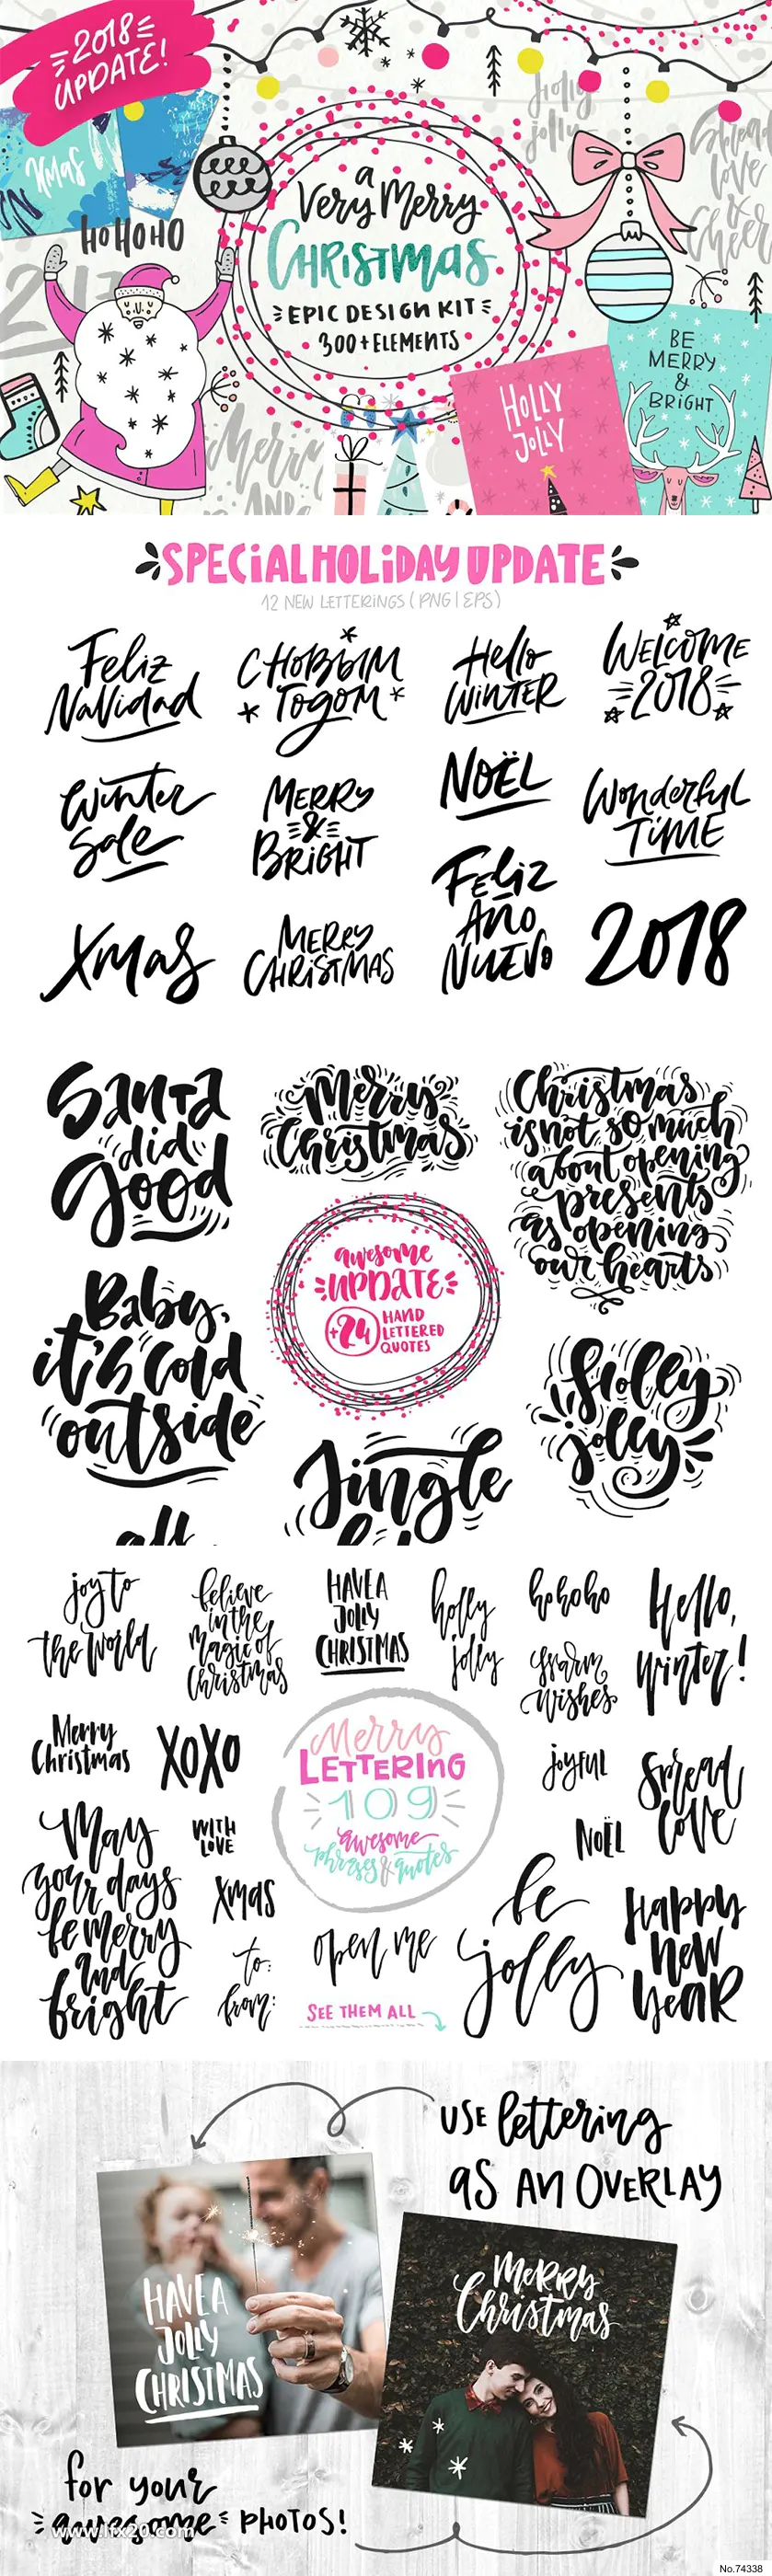 2018
UPDATE!
Xmas
HO HO HO
holly
jolly
Spread
love
&
Cheer
2017
a
Very Merry
CHRISTMAS
EPIC DESIGN KIT
300+ ELEMENTS
Merry
AND
HOLLY
JOLLY
BE
MERRY
&
BRIGHT
SPECIAL HOLIDAY UPDATE
12 NEW LETTERINGS (PNG | EPS)
Feliz
Navidad
С НОВЫМ
Годом
Hello
WINTER
WELCOME
2018
Winter
Sale
MERRY
&
BRIGHT
NOËL
Wonderful
TIME
Xmas
MERRY
CHRISTMAS
FELIZ
AÑO
NUEVO
2018
Santa
did
good
Merry
Christmas
Christmas
is not so much
about opening
presents
as opening
our hearts
awesome
UPDATE
+24
HAND
LETTERED
QUOTES
Baby,
it's cold
outside
Holly
jolly
all
Jingle
joy to
the world
believe
in the
magic of
Christmas
HAVE A
JOLLY
CHRISTMAS
holly
jolly
hohoho
warm
wishes
Hello,
winter!
Merry
Christmas
XOXO
Merry
LETTERING
109
awesome
phrases & quotes
joyful
NOËL
Spread
love
May
your days
be merry
and
bright
WITH
LOVE
Xmas
to:
from:
open me
SEE THEM ALL
be
jolly
Happy
New
Year
USE lettering
AS AN OVERLAY
HAVE A
JOLLY
CHRISTMAS
MERRY
Christmas
for your
awesome PHOTOS!
www.lfx20.com
No.74338